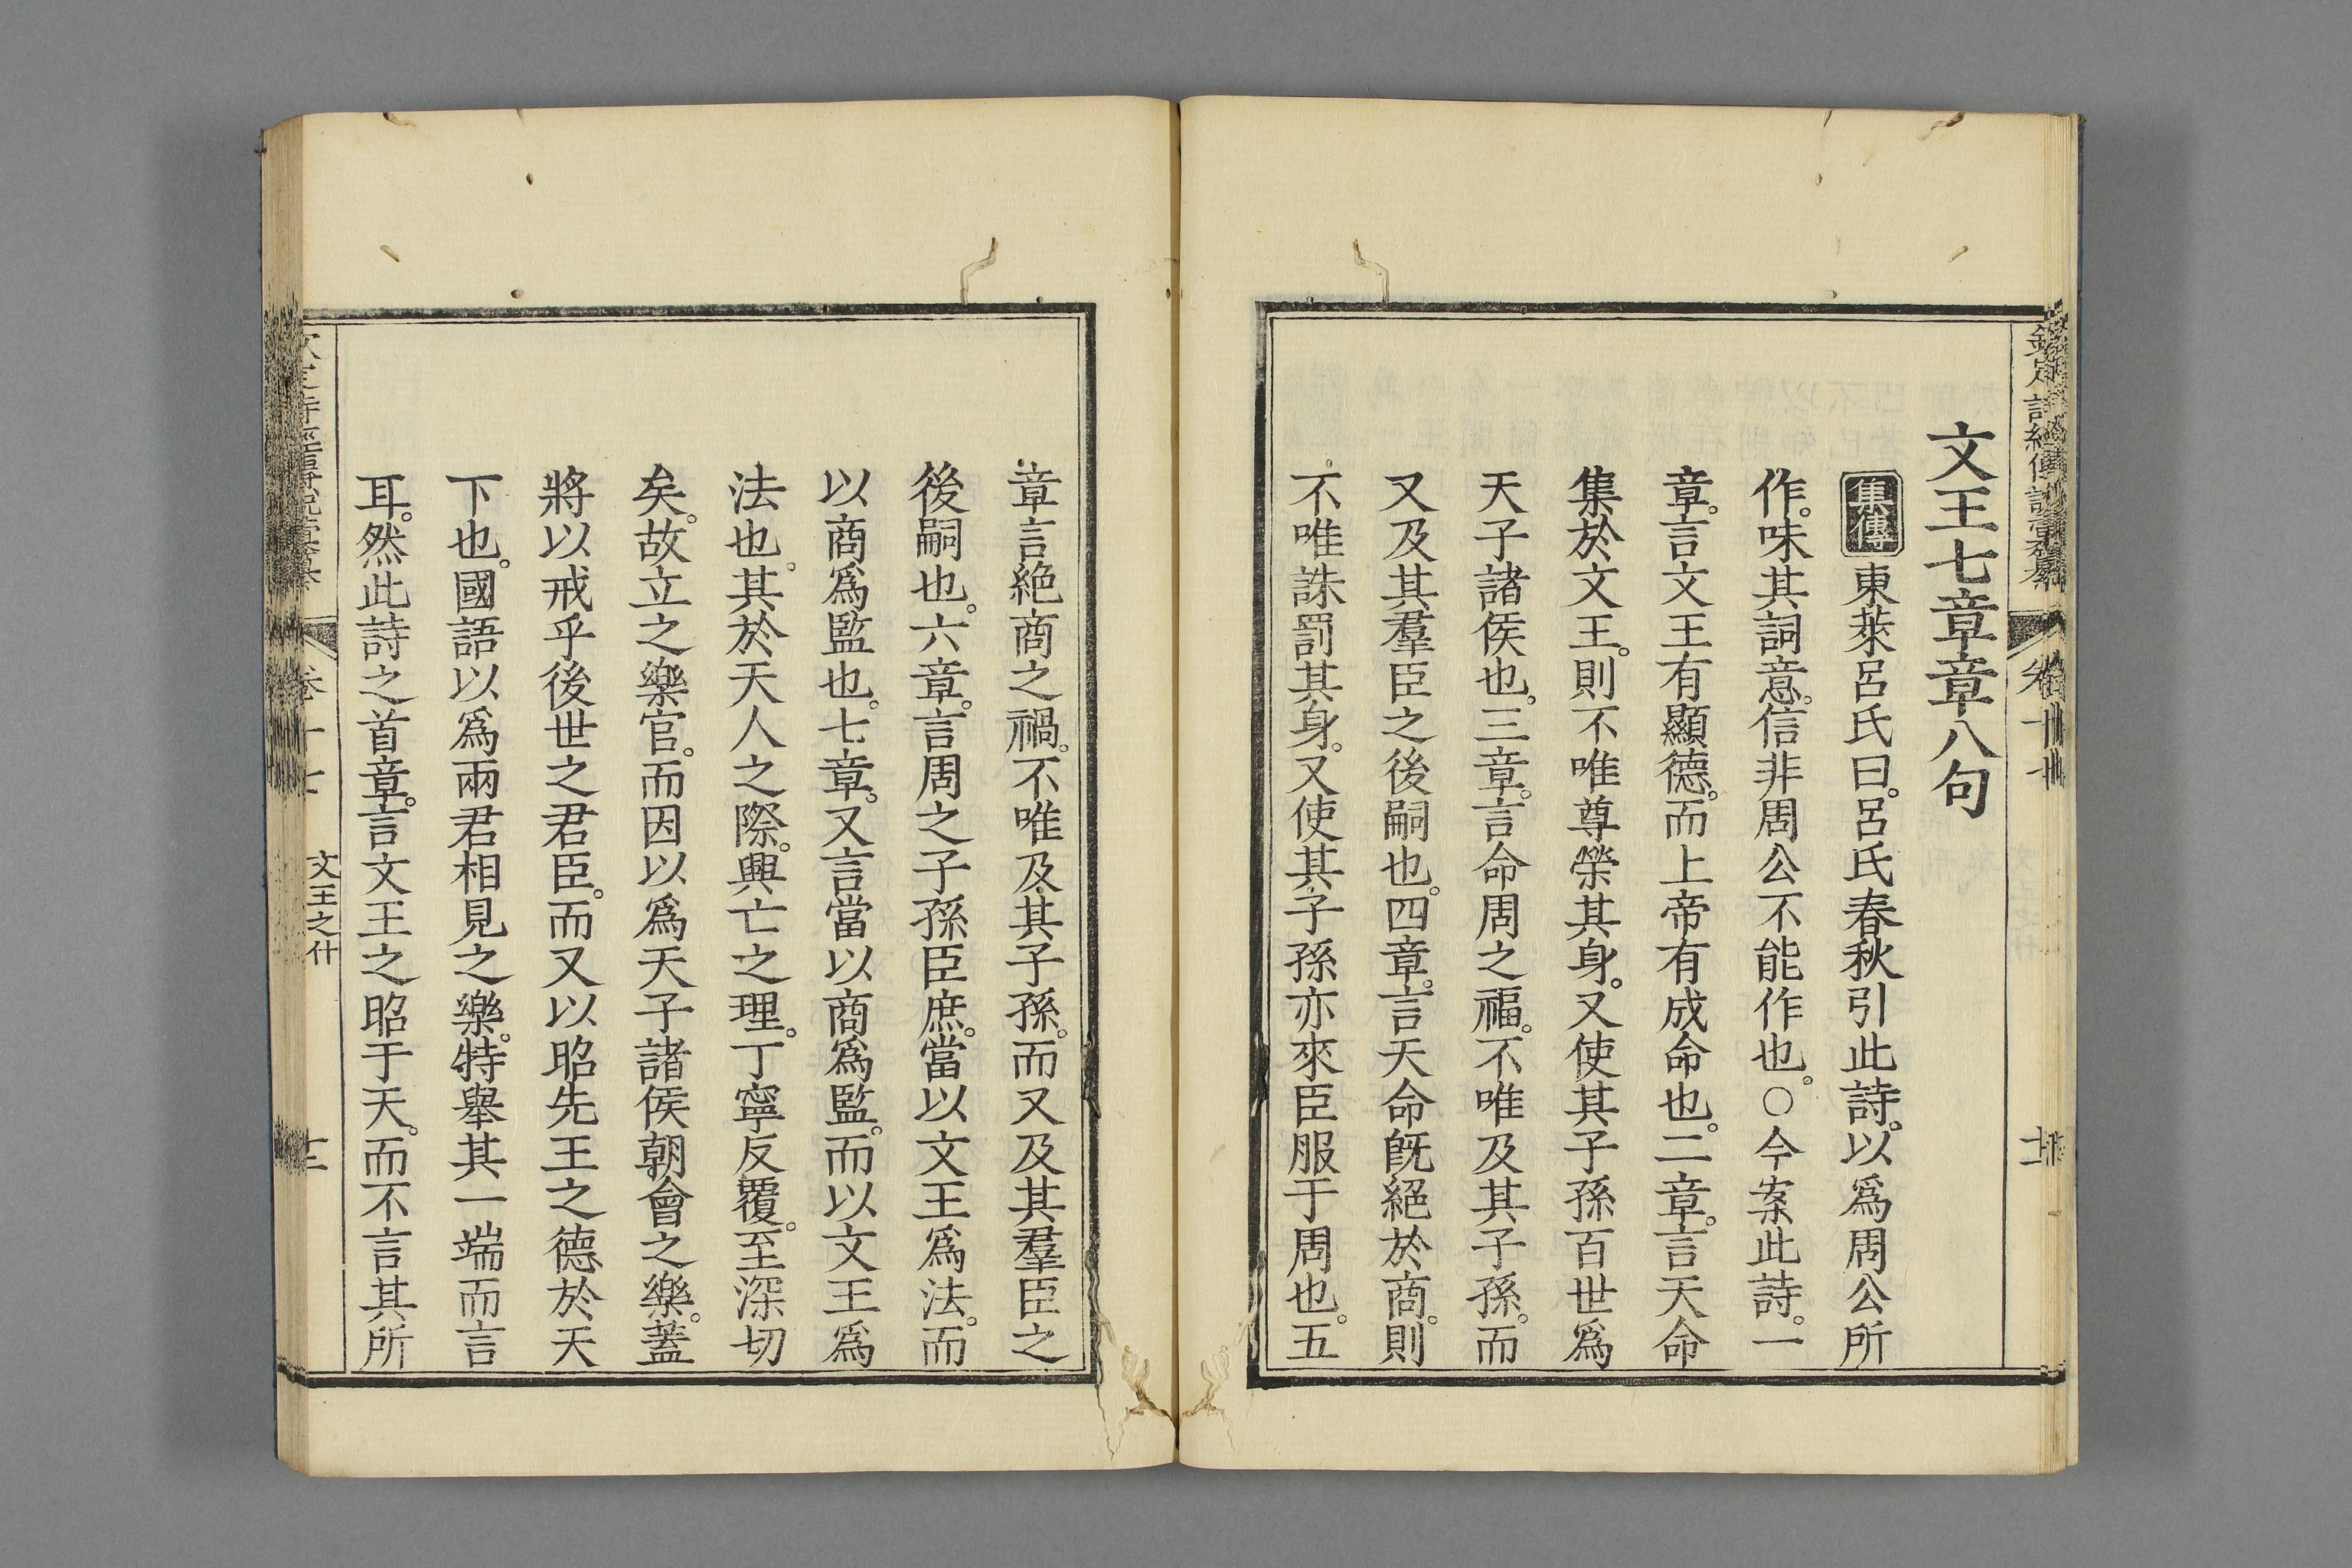 文王七章章八句
集傳東萊呂氏曰。呂氏春秋引此詩。以爲周公所
作。味其詞意。信非周公不能作也。○今案此詩。一
章。言文王有顯德。而上帝有成命也。二章。言天命
集於文王。則不唯尊榮其身。又使其子孫百世爲
天子諸侯也。三章。言命周之福。不唯及其子孫。而
又及其羣臣之後嗣也。四章。言天命旣絕於商。則
不唯誅罰其身。又使其子孫亦來臣服于周也。五
章言絕商之禍。不唯及其子孫。而又及其羣臣之
後嗣也。六章。言周之子孫臣庶。當以文王爲法。而
以商爲監也。七章。又言當以商爲監。而以文王爲
法也。其於天人之際。興亡之理。丁寧反覆。至深切
矣。故立之樂官。而因以爲天子諸侯朝會之樂。蓋
將以戒乎後世之君臣。而又以昭先王之德於天
下也。國語以爲兩君相見之樂。特舉其一端而言
耳。然此詩之首章。言文王之昭于天。而不言其所
文王之什